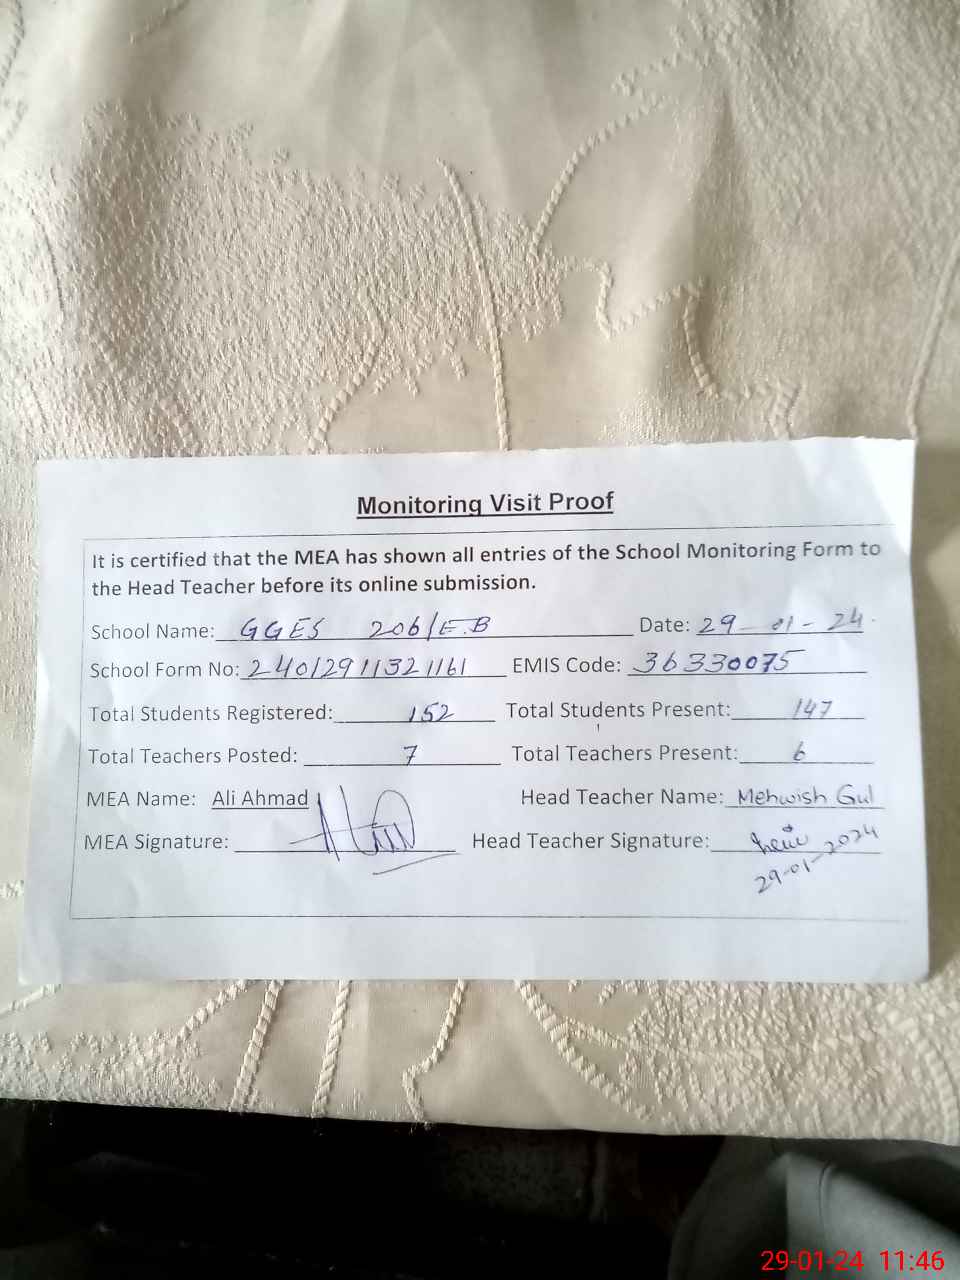 Monitoring Visit Proof
It is certified that the MEA has shown all entries of the School Monitoring Form to
the Head Teacher before its online submission.
School Name: GGES 206/E.B Date: 29-01-24
School Form No: 24012911321161 EMIS Code: 36330075
Total Students Registered: 152 Total Students Present: 147
Total Teachers Posted: 7 Total Teachers Present: 6
MEA Name: Ali Ahmad Head Teacher Name: Mehwish Gul
MEA Signature: Head Teacher Signature:
29-01-2024
29-01-24 11:46